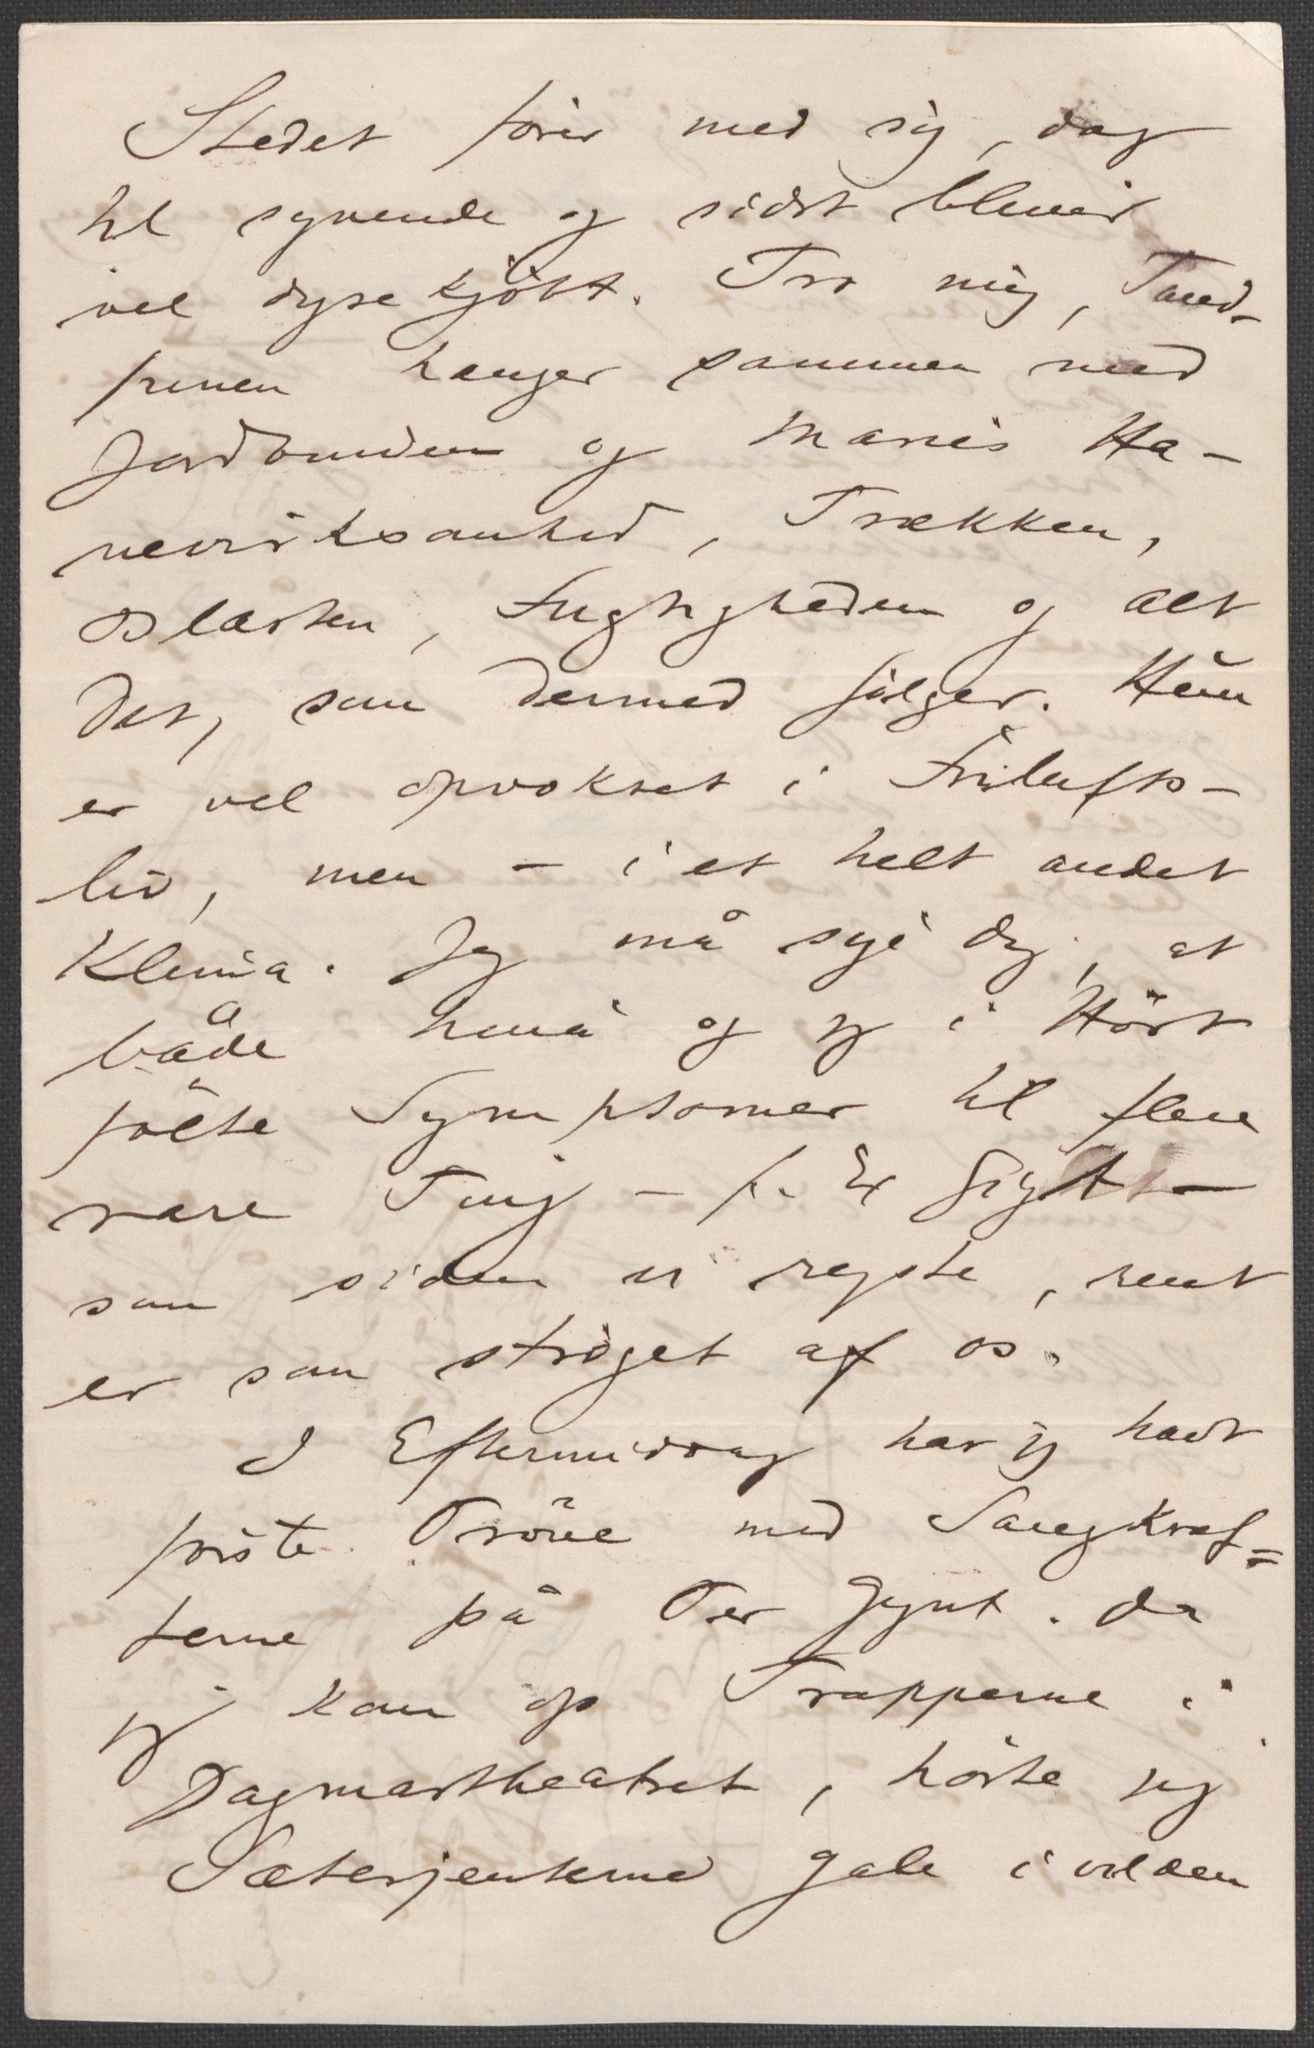 Stedet fører med sig, dog
til syvende og sidst bliver
vel dyrekjöbt. Tro mig, Tand-
pinen hænger sammen med
Jordbunden og Maries Ha-
vevirksomhed, Trækken,
Blæsten, Fugtigheden og alt
det, som dermed følger. Hun
er vel opvokset i Frilufts-
liv, men – i et helt andet
Klima. Jeg må sige dig, at
både Nina og jeg i Höst
følte Symptomer til flere
rare Ting – f. Ex Gigt –
som siden vi rejste, rent
er som strøget af os.
I Eftermiddag har jeg havt
første Pröve med Sangkræf=
terne på Peer Gynt. Da
jeg kom op Trapperne i
Dagmartheatret, hørte jeg
Sæterjenterne gale i vilden